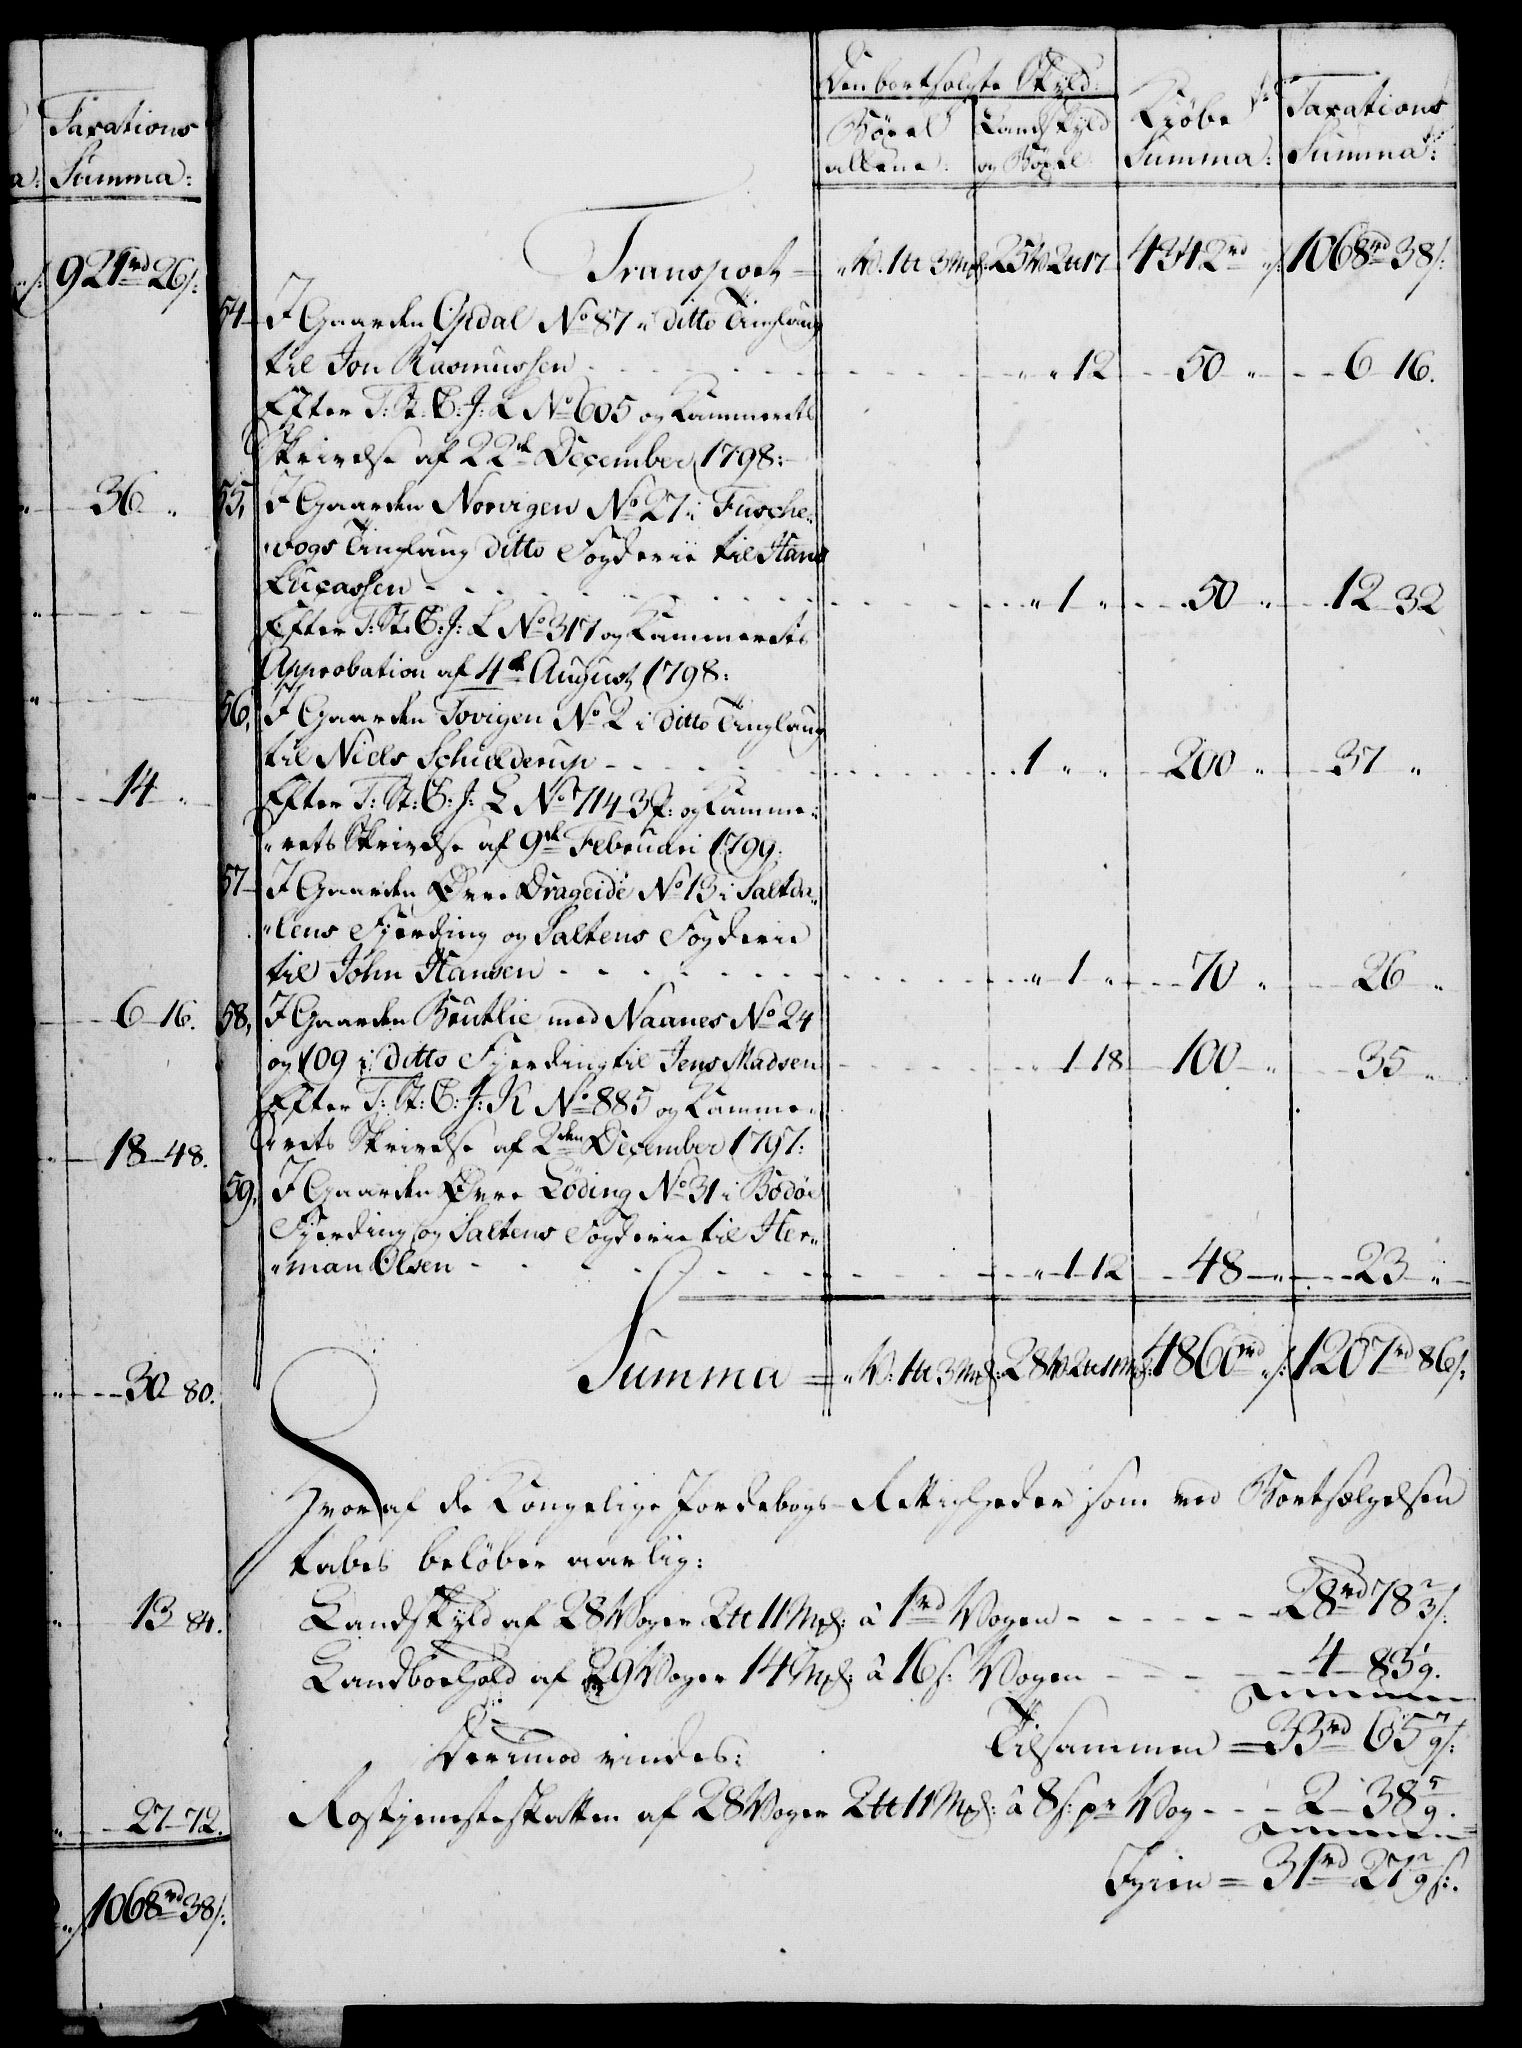 Taxations
a: Summa:
921rd 26s:
36 "
14 "
6 16.
18 48.
30 80.
13 84.
27 72.
1068rd 38s:
Den bortsolgte Skyld:
Böxel Landskyld Kiöbe Taxations
allene: og Böxel Summa: Summa:
Transport = " W. 1tt 3Mk: 25W 2tt 17 4342rd " s: 1068rd 38s:
54 I Gaarden Opdal No 87 i ditto Tinglaug
til Jon Rasmussen - - - " " 12 50 " 6 16.
Efter T: St: C: J: L No 605 og Kammerets
Skrivelse af 22de December 1798:
55, I Gaarden Norvigen No 27 i Fusche-
"vogs Tinglaug ditto Fogderie til Hans
Lucassen - - - " 1 " 50 " 12 32
Efter T: St: C: J: L No 317 og Kammerets
Approbation af 4de August 1798:
56, I Gaarden Tovigen No 2 i ditto Tinglaug
til Niels Schielderup - - - 1 " " 200 " 37 "
Efter T: St: C: J: L No 714 og Kamme-
"rets Skrivelse af 9de Februari 1799.
57 I Gaarden Øvre Drageide No 13 i Saltda-
"lens Fjerding og Saltens Fogderie
til John Hansen - - - " 1 " 70 " 26 "
58, I Gaarden Brutlie med Naanes No 24
og 109 i ditto Fjerding til Jens Madsen " 1 18 100 " 35 "
Efter T: St: C: J: K No 885 og Kamme-
"rets Skrivelse af 2den December 1797:
59, I Gaarden Øvre Löding No 31 i Bodöe
Fjerding og Saltens Fogderie til Her-
"man Olsen - - - " 1 12 48 " 23 "
Summa = " W: 1tt 3Mk: 28W 2tt 11Mk: 4860rd " s: 1207rd 86s:
Hvoraf de Kongelige Jordebogs-Rettigheder som ved Bortsælgelsen
tabes belöber aarlig:
Landskyld af 28 Woger 2tt 11Mk: à 1rd Wogen - - - 28rd 78 2/3s:
Landbohold af 29 Woger 14Mk: à 16s: Wogen - - - 4 83 1/9.
Tilsammen = 33rd 65 7/9s:
Derimod vindes:
Rostjenesteskatten af 28 Woger 2tt 11Mk: à 8s: pr Wog - - - 2 38 5/9.
Igien = 31rd 27 2/9s:.